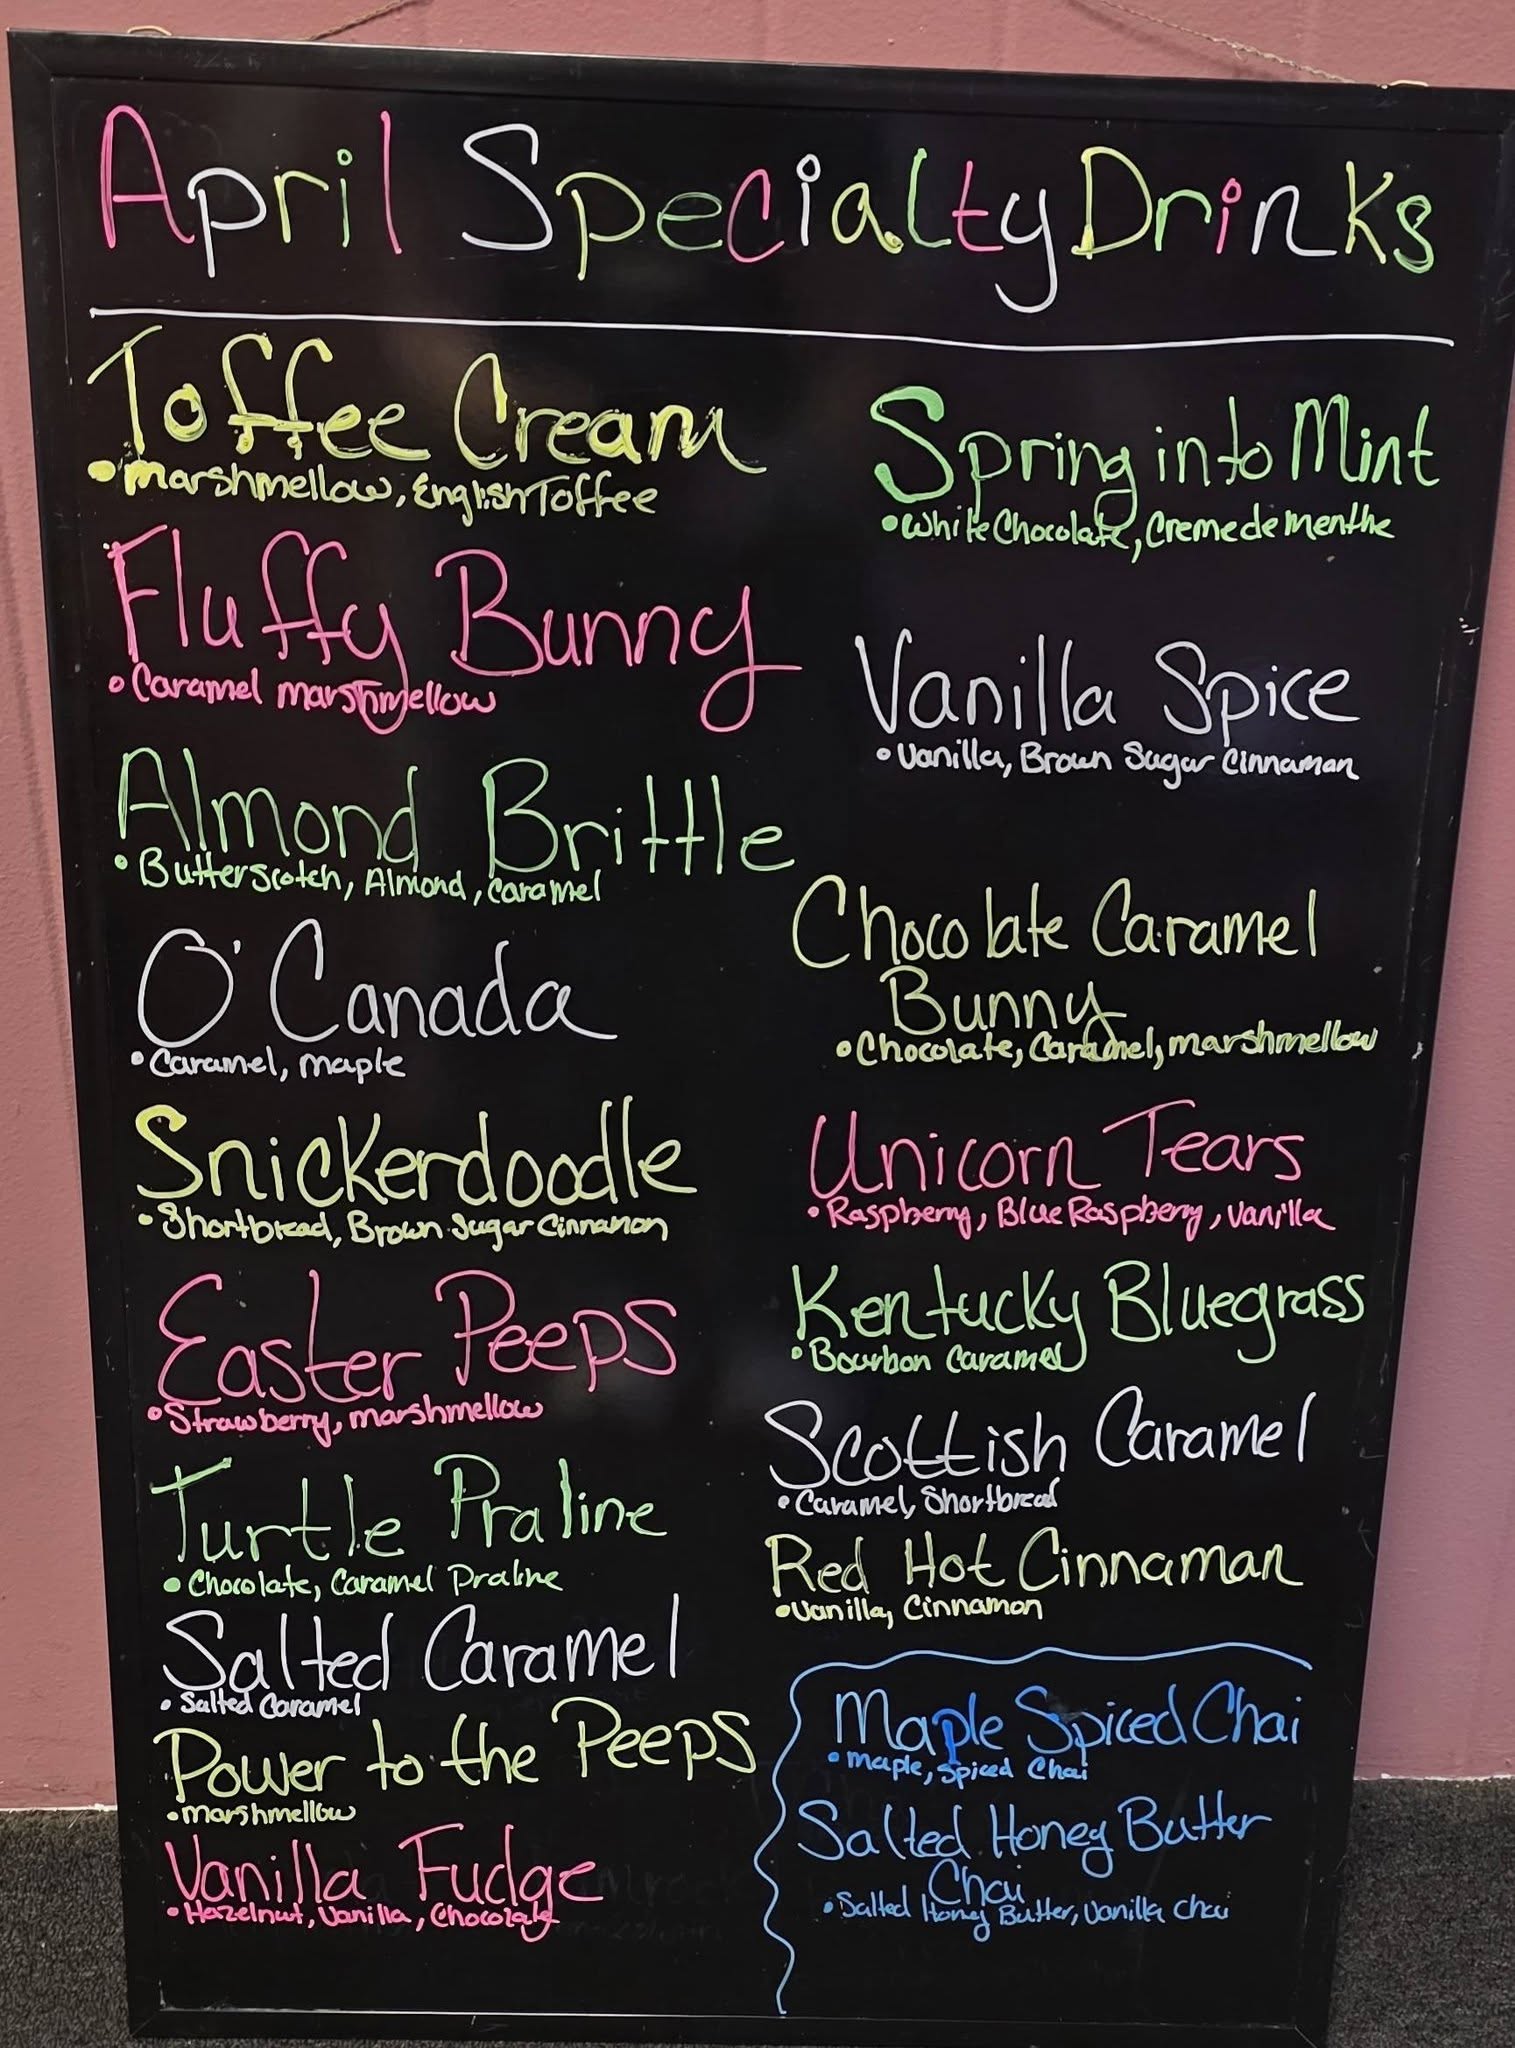 April Specialty Drinks
Toffee Cream
• Marshmellow, English Toffee
Fluffy Bunny
• Caramel marshmellow
Almond Brittle
• Butterscotch, Almond, Caramel
O' Canada
• Caramel, Maple
Snickerdoodle
• Shortbread, Brown Sugar Cinnamon
Easter Peeps
• Strawberry, marshmellow
Turtle Praline
• Chocolate, Caramel Praline
Salted Caramel
• Salted Caramel
Power to the Peeps
• marshmellow
Vanilla Fudge
• Hazelnut, Vanilla, Chocolate
Spring into Mint
• White Chocolate, Creme de menthe
Vanilla Spice
• Vanilla, Brown Sugar Cinnaman
Chocolate Caramel
Bunny
• Chocolate, Caramel, marshmellow
Unicorn Tears
• Raspberry, Blue Raspberry, Vanilla
Kentucky Bluegrass
• Bourbon Caramel
Scottish Caramel
• Caramel, Shortbread
Red Hot Cinnaman
• Vanilla, Cinnamon
Maple Spiced Chai
• Maple, Spiced Chai
Salted Honey Butter
Chai
• Salted Honey Butter, Vanilla Chai